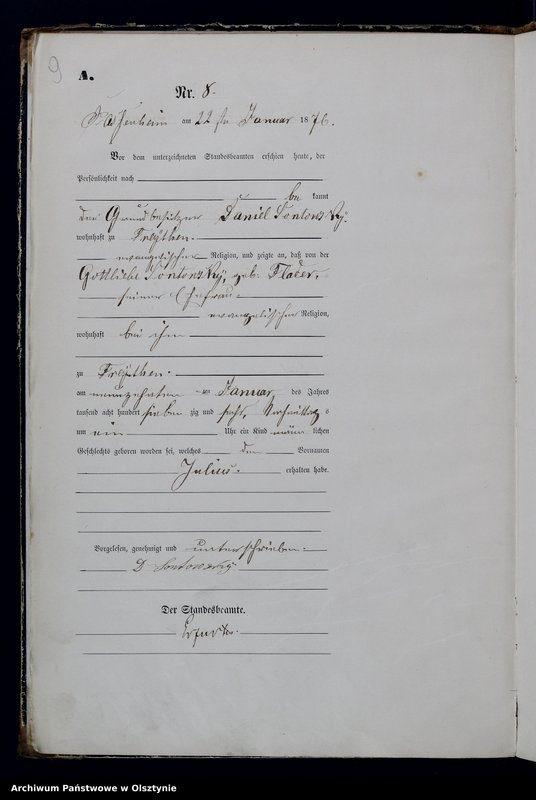 9
A.
Nr. 8.
am 22 ten Januar 1876.
Vor dem unterzeichneten Standesbeamten erschien heute, der
Persönlichkeit nach
be kannt
der Grundbesitzer Daniel Sontowsky,
wohnhaft zu Freythen.
evangelischer Religion, und zeigte an, daß von der
Gottliebe Sontowsky, geb.
seiner Ehefrau
evangelischer Religion,
wohnhaft bei ihm
zu Freythen.
am neunzehnten ten Januar des Jahres
tausend acht hundert sieben zig und sechs, Vormittags
um ein Uhr ein Kind männ lichen
Geschlechts geboren worden sei, welches den Vornamen
Julius. erhalten habe.
Vorgelesen, genehmigt und unterschrieben.
D Sontowsky
Der Standesbeamte.
Archiwum Państwowe w Olsztynie